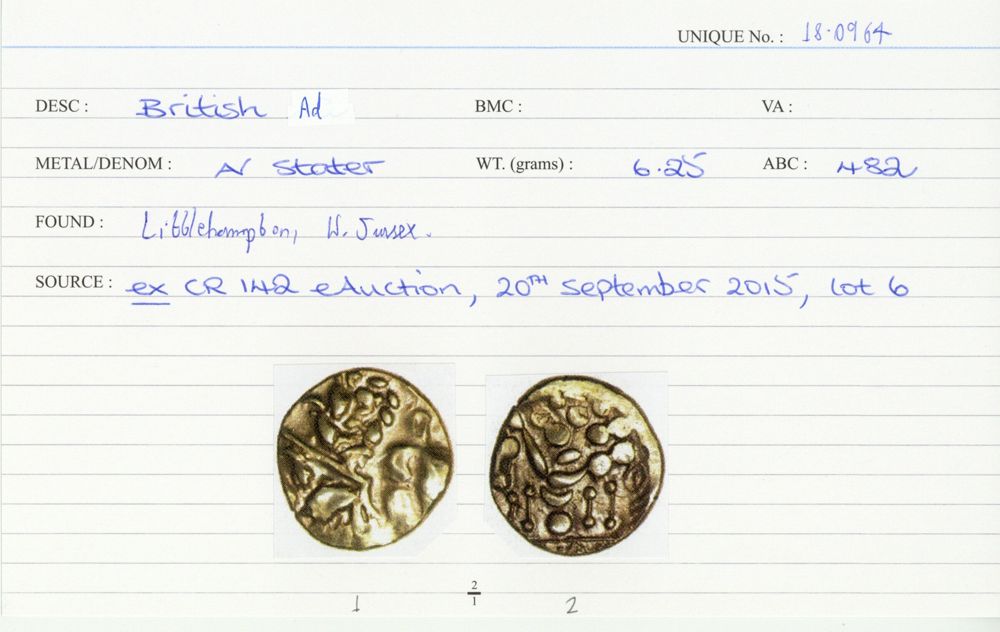 UNIQUE No. : 18.0964
DESC : British Ad BMC : VA :
METAL/DENOM : AV Stater WT. (grams) : 6.25 ABC : 482
FOUND : Littlehampton, W. Sussex.
SOURCE : ex CR 142 eAuction, 20TH September 2015, lot 6
1 2/1 2